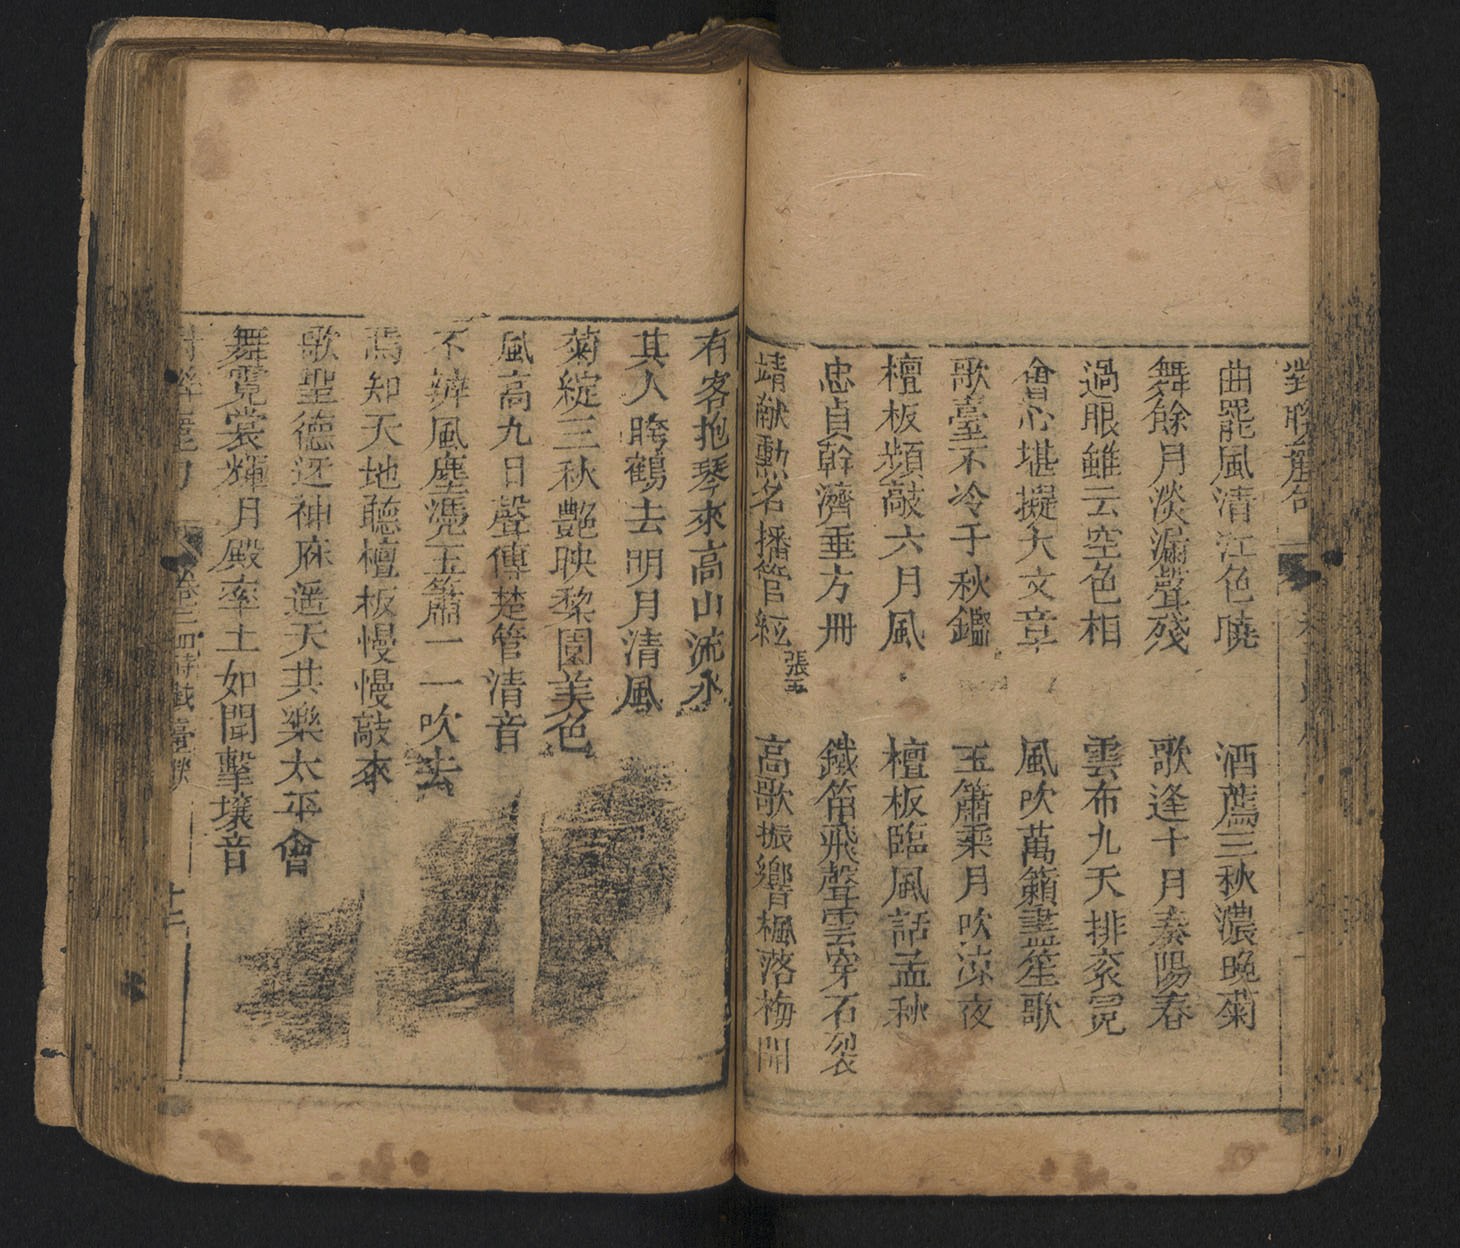 曲罷風清江色曉　酒薦三秋濃晚菊
舞餘月淡漏聲殘　歌逢十月奏陽春
過眼雖云空色相　雲布九天排袞冕
會心堪擬大文章　風吹萬籟盡笙歌
歌臺不冷千秋鑑　玉簫乘月吹涼夜
檀板頻敲六月風　檀板臨風話孟秋
忠貞幹濟垂方冊　鐵笛飛聲雲穿石裂
靖献勲名播管絃　張玉　高歌振響楓落梅開
有客抱琴來高山流水
其人跨鶴去明月清風
菊綻三秋艷映梨園美色
風高九日聲傳楚管清音
不辨風塵凴玉簫一一吹去
焉知天地聽檀板慢慢敲來
歌聖德迓神庥遥天共樂太平會
舞霓裳輝月殿率土如聞擊壤音